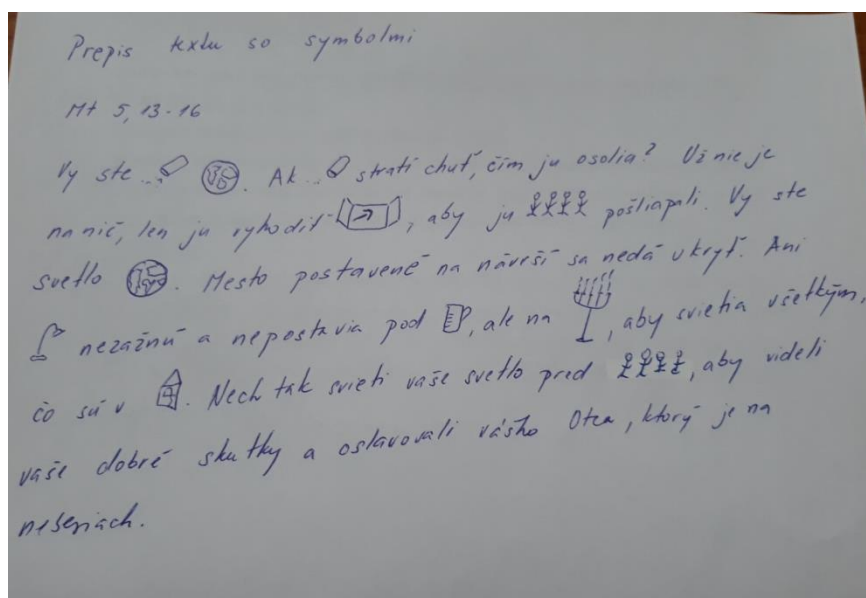 Prepis textu so symbolmi
Mt 5, 13-16
Vy ste ... . Ak ... stratí chuť, čím ju osolia? Už nie je
na nič, len ju vyhodiť , aby ju pošliapali. Vy ste
svetlo . Mesto postavené na návrší sa nedá ukryť. Ani
nezažnú a nepostavia pod , ale na , aby svietia všetkým,
čo sú v . Nech tak svieti vaše svetlo pred , aby videli
vaše dobré skutky a oslavovali vášho Otca, ktorý je na
nebesiach.